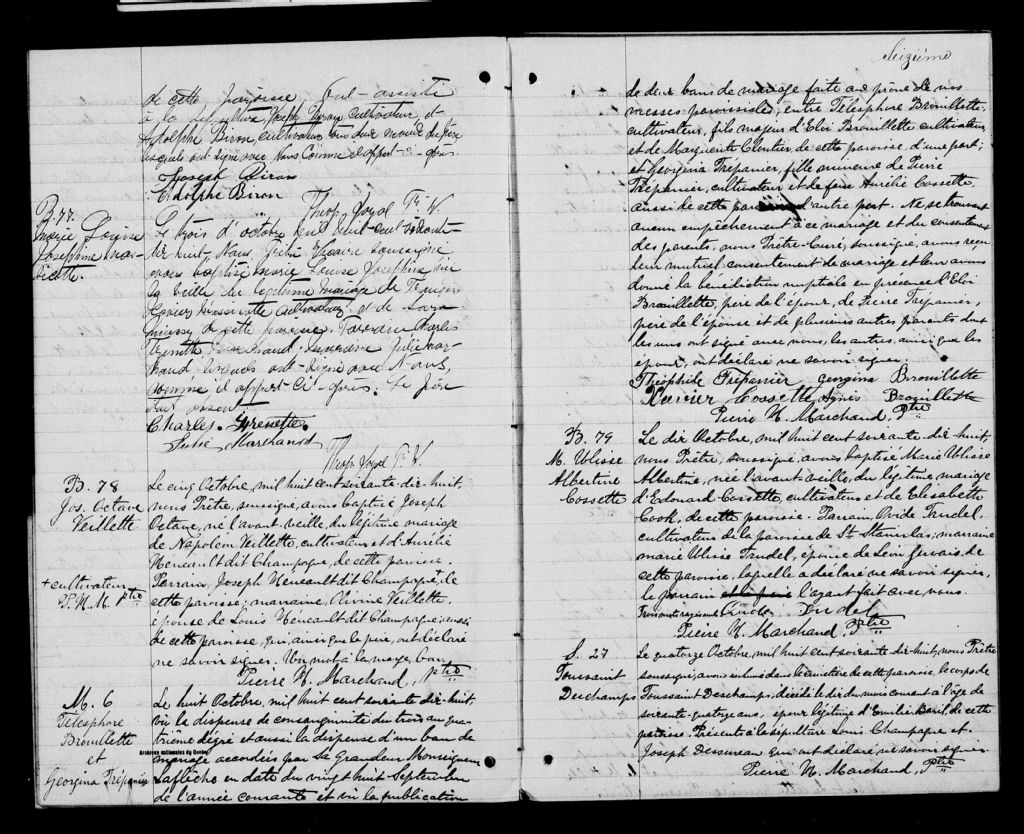 de cette paroisse Ont assisté
à la sépulture Joseph Biron cultivateur et
Adolphe Biron, cultivateur tous deux
lesquels ont signé avec Nous Comme il appert-ci-après
Joseph Biron
Adolphe Biron
Théop. Joyal Ptr V.
B. 77.
Marie Louise
Joséphine
Le trois d'octobre mil huit-cent-soixante
dix huit, Nous, Prêtre Vicaire soussigné
avons baptisé Marie Louise Josephine née
la veille du légitime mariage de
cultivateur, et de
de cette paroisse. Parrain Charles
Trenette marraine Julie Mar-
chand, lesquels ont signé avec Nous,
comme il appert-Ci-après. Le père
était absent
Charles. Trenette.
Julie Marchand
Théop. Joyal Ptr V.
B. 78
Jos. Octave
Veillette
Le cinq Octobre, mil huit cent soixante dix-huit,
nous Prêtre, soussigné, avons baptisé Joseph
Octave, né l'avant veille, du légitime mariage
de Napoléon Veillette, cultivateur et d'Aurélie
Heneault dit Champagne, de cette paroisse.
+ cultivateur
P. H. M. Ptre
Parrain, Joseph Heneault dit Champagne, + de
cette paroisse; marraine, Olivine Veillette,
épouse de Louis Heneault dit Champagne, aussi
de cette paroisse, qui, ainsi que le père, ont déclaré
ne savoir signer. Un mot à la marge, bon.
Pierre H. Marchand, Ptre
M. 6
Télesphore
Brouillette
et
Georgina Trépanier
Le huit Octobre, mil huit cent soixante dix-huit,
vû la dispense de consanguinité du trois au qua-
trième dégré et aussi la dispense d'un ban de
Archives nationales du Québec
mariage accordées par Sa Grandeur Monseigneur
Laflèche en date du vingt huit Septembre
de l'année courante et vû la publication
Seizième
de deux bans de mariage faite au prône de nos
messes paroissiales, entre Télesphore Brouillette,
cultivateur, fils majeur d'Eloi Brouillette cultivateur
et de Marguerite Cloutier, de cette paroisse, d'une part;
et Georgina Trépanier, fille mineure de Pierre
Trépanier, cultivateur et de feue Aurélie Cossette,
aussi de cette paroisse, d'autre part. Ne se trouvant
aucun empêchement à ce mariage et du consentement
des parents, nous Prêtre-Curé, soussigné, avons reçu
leur mutuel consentement de mariage et leur avons
donné la bénédiction nuptiale en présence d'Eloi
Brouillette, père de l'époux, de Pierre Trépanier,
père de l'épouse et de plusieurs autres parents dont
les uns ont signé avec nous, les autres, ainsi que les
époux, ont déclaré ne savoir signer.
Théophile Trépanier Georgina Brouillette
Xavier Cossette Agnès Brouillette
Pierre H. Marchand, Ptre
B. 79
M. Ulisse
Albertine
Cossette
Le dix Octobre, mil huit cent soixante dix-huit,
nous Prêtre, soussigné, avons baptisé Marie Ulisse
Albertine, née l'avant-veille, du légitime mariage
d'Edouard Cossette, cultivateur et de Elisabeth
Cook, de cette paroisse. Parrain Ovide Trudel,
cultivateur de la paroisse de St-Stanislas; marraine
Marie Ulisse Trudel, épouse de Léon Gervais, de
cette paroisse, laquelle a déclaré ne savoir signer,
le parrain et le père l'ayant fait avec nous.
Trois mots rayés nuls Ovide Trudel
Pierre H. Marchand, Ptre
S. 27
Toussaint
Deschamps
Le quatorze Octobre, mil huit cent soixante dix-huit, nous Prêtre
soussigné, avons inhumé dans le cimetière de cette paroisse, le corps de
Toussaint Deschamps, décédé le dix du mois courant à l'âge de
soixante-quatorze ans, époux légitime d'Emilie Baril, de cette
paroisse. Présents à la sépulture Louis Champagne et
Joseph Dessureau qui ont déclaré ne savoir signer.
Pierre H. Marchand, Ptre